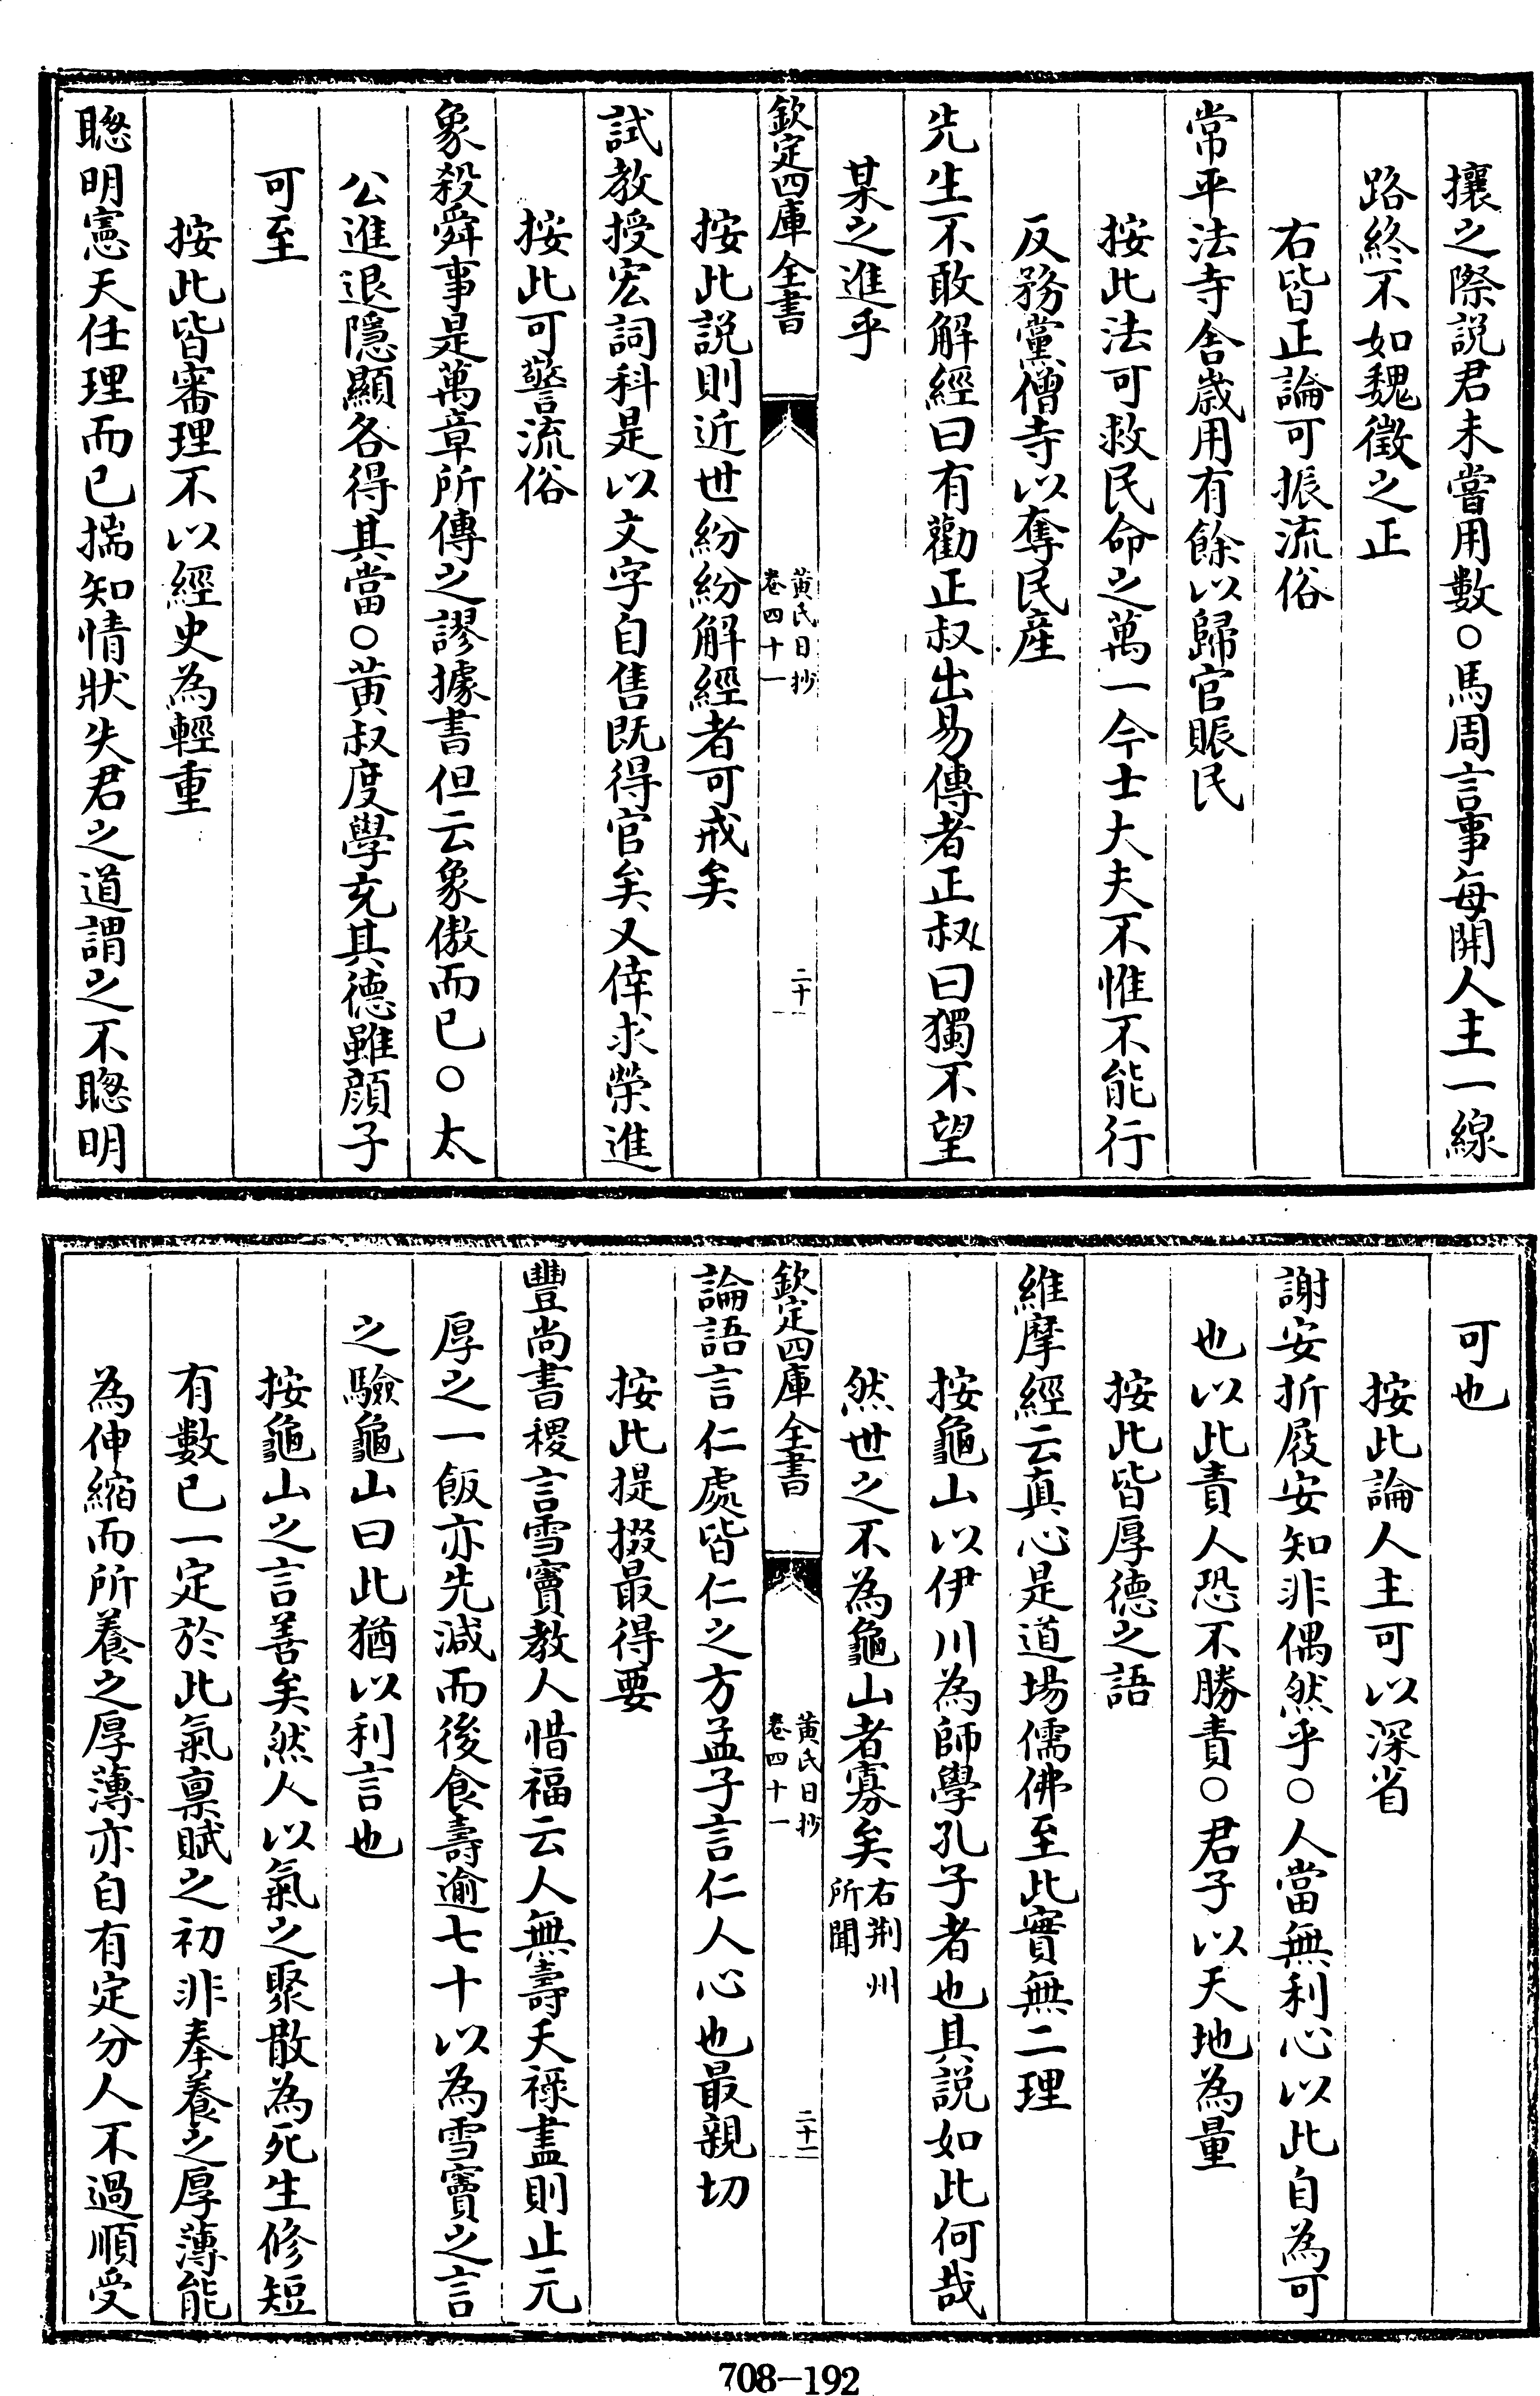 攘之際説君未嘗用數○馬周言事每開人主一線
路終不如魏徵之正
右皆正論可振流俗
常平法寺舍歳用有餘以歸官賑民
按此法可救民命之萬一今士大夫不惟不能行
反務黨僧寺以奪民産
先生不敢解經曰有勸正叔出易傳者正叔曰獨不望
某之進乎
欽定四庫全書
黄氏日抄
卷四十一
二十
按此説則近世紛紛解經者可戒矣
試教授宏詞科是以文字自售既得官矣又倖求榮進
按此可警流俗
象殺舜事是萬章所傳之謬據書但云象傲而已○太
公進退隱顯各得其當○黄叔度學充其德雖顔子
可至
按此皆審理不以經史為輕重
聰明憲天任理而已揣知情狀失君之道謂之不聰明
可也
按此論人主可以深省
謝安折屐安知非偶然乎○人當無利心以此自為可
也以此責人恐不勝責○君子以天地為量
按此皆厚德之語
維摩經云真心是道場儒佛至此實無二理
按龜山以伊川為師學孔子者也其説如此何哉
然世之不為龜山者寡矣右荆州所聞
欽定四庫全書
黄氏日抄
卷四十一
二十一
論語言仁處皆仁之方孟子言仁人心也最親切
按此提掇最得要
豐尚書稷言雪竇教人惜福云人無壽夭禄盡則止元
厚之一飯亦先減而後食壽逾七十以為雪竇之言
之驗龜山曰此猶以利言也
按龜山之言善矣然人以氣之聚散為死生修短
有數已一定於此氣禀賦之初非奉養之厚薄能
為伸縮而所養之厚薄亦自有定分人不過順受
708-192